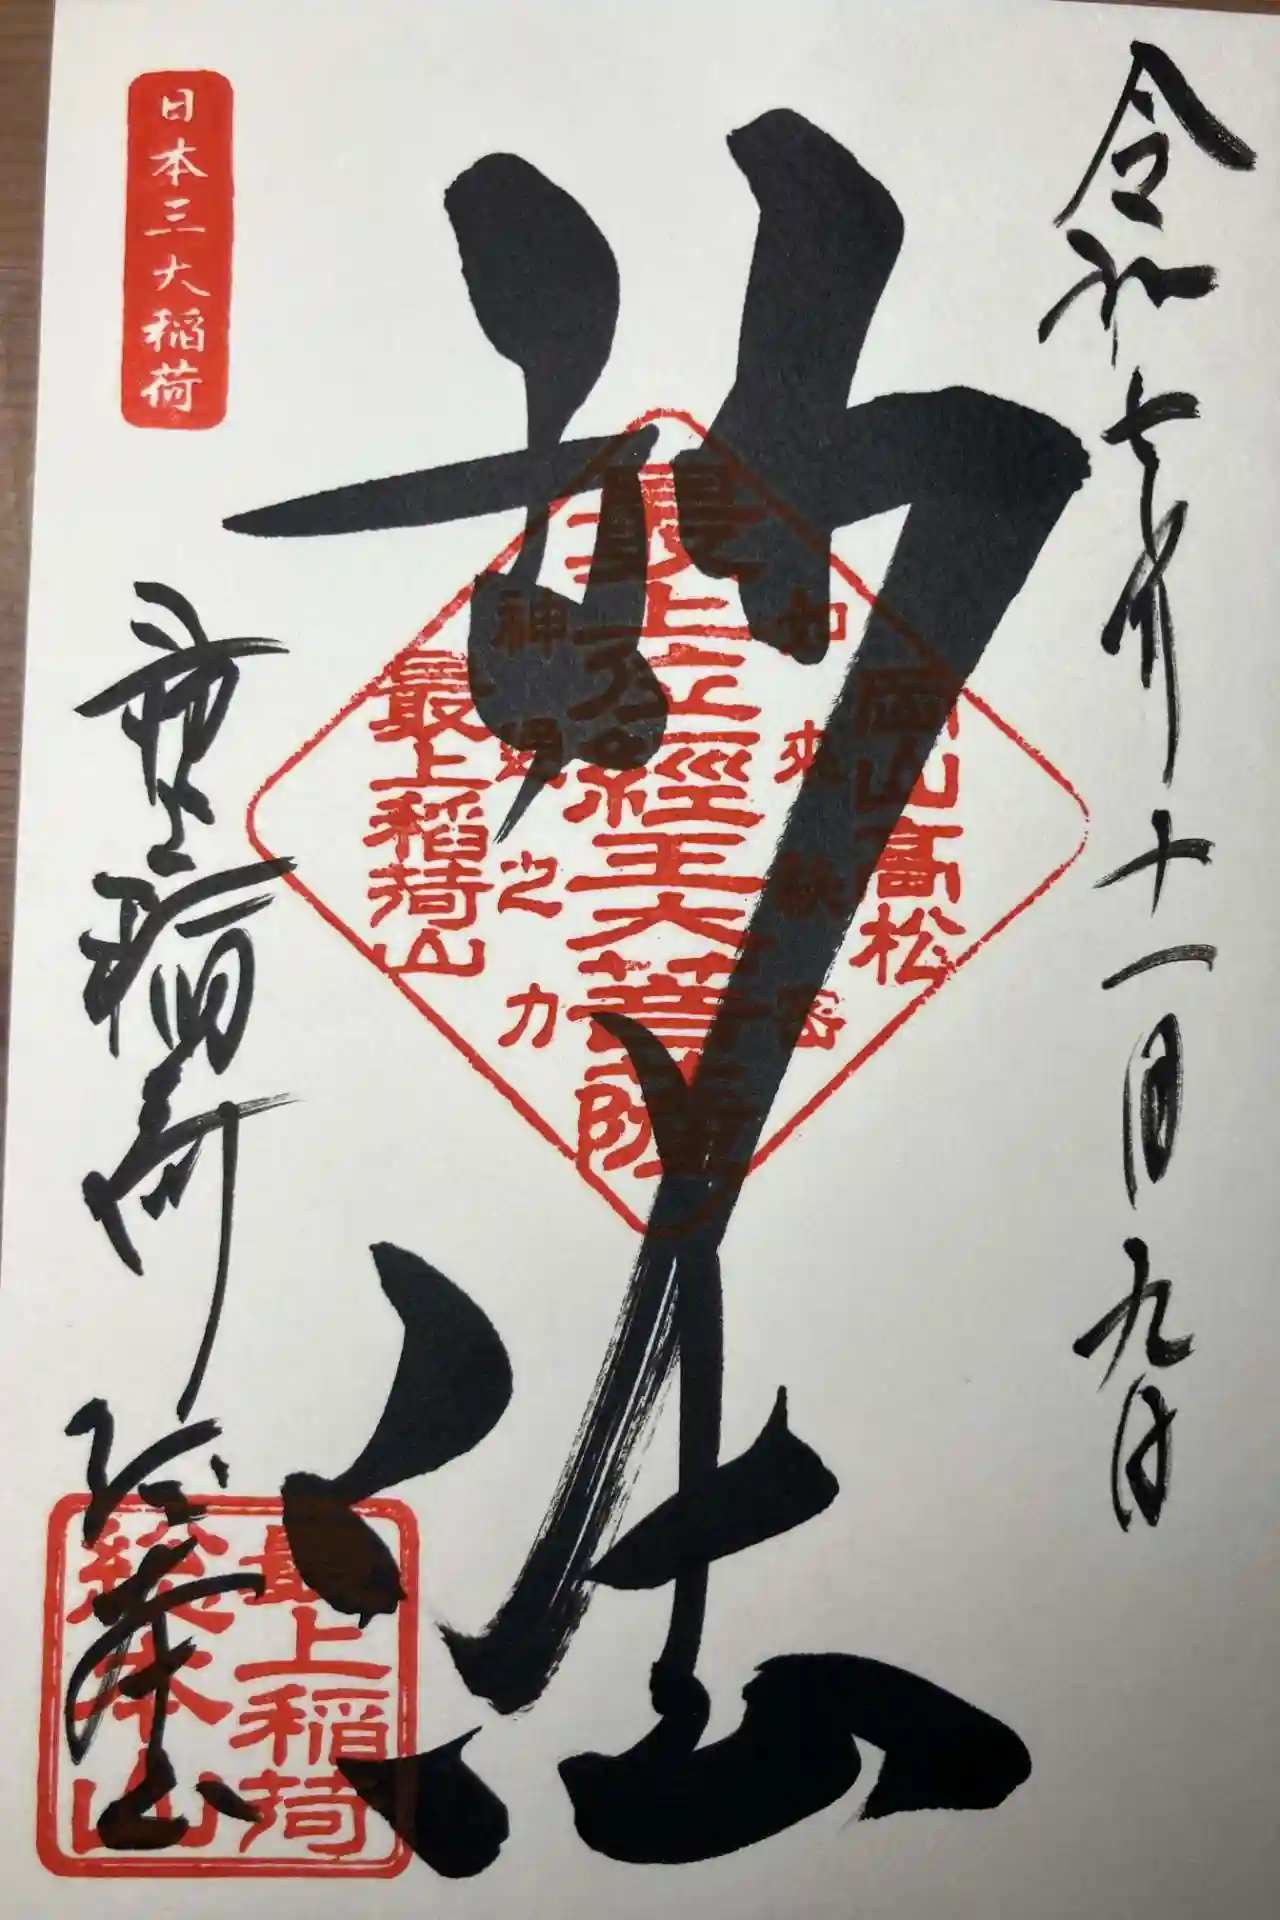 令和七年十一月九日
妙法
岡山高松
如来秘密
最上位經王大菩薩
神通之力
最上稲荷山
日本三大稲荷
最上稲荷総本山
最上稲荷
総本山